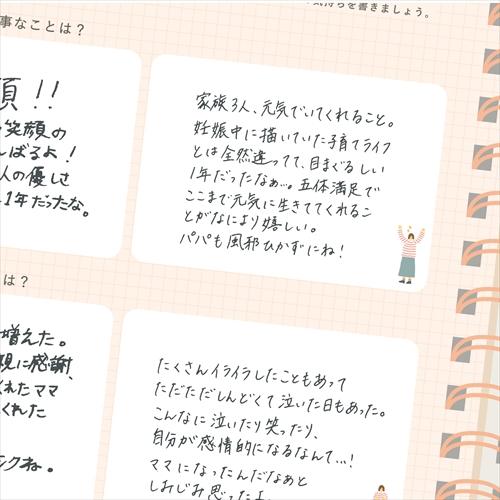 気持ちを書きましょう。
事なことは？
顔!!
笑顔の
んばるよ!
人の優しさ
1年だったな。
家族3人、元気でいてくれること。
妊娠中に描いていた子育てライフ
とは全然違ってて、目まぐるしい
1年だったなぁ…。五体満足で
ここまで元気に生きててくれるこ
とがなにより嬉しい。
パパも風邪ひかずにね!
は？
増えた。
親に感謝、
くれたママ
くれた
ね。
たくさんイライラしたこともあって
ただただしんどくて泣いた日もあった。
こんなに泣いたり笑ったり、
自分が感情的になるなんて…!
ママになったんだなぁと
しみじみ思ったよ